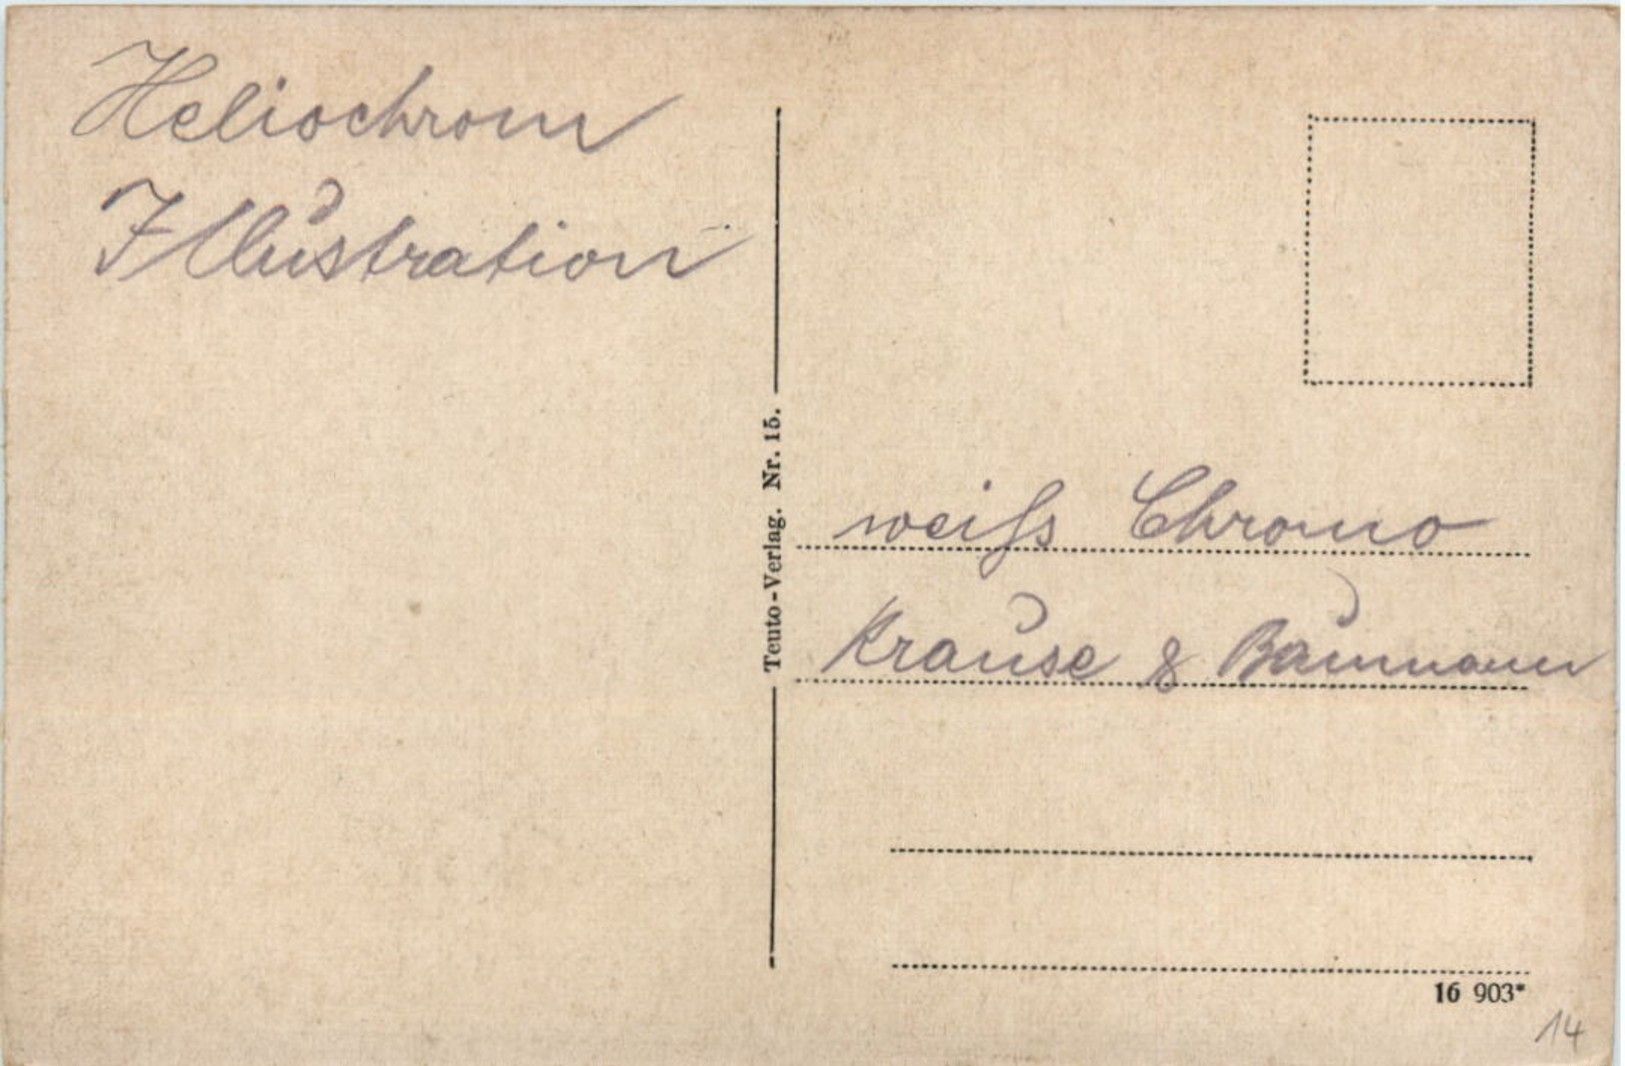 Heliochrom
Illustration
Teuto-Verlag. Nr. 15.
weiſs Chromo
Krause & Baumann
16 903*
14